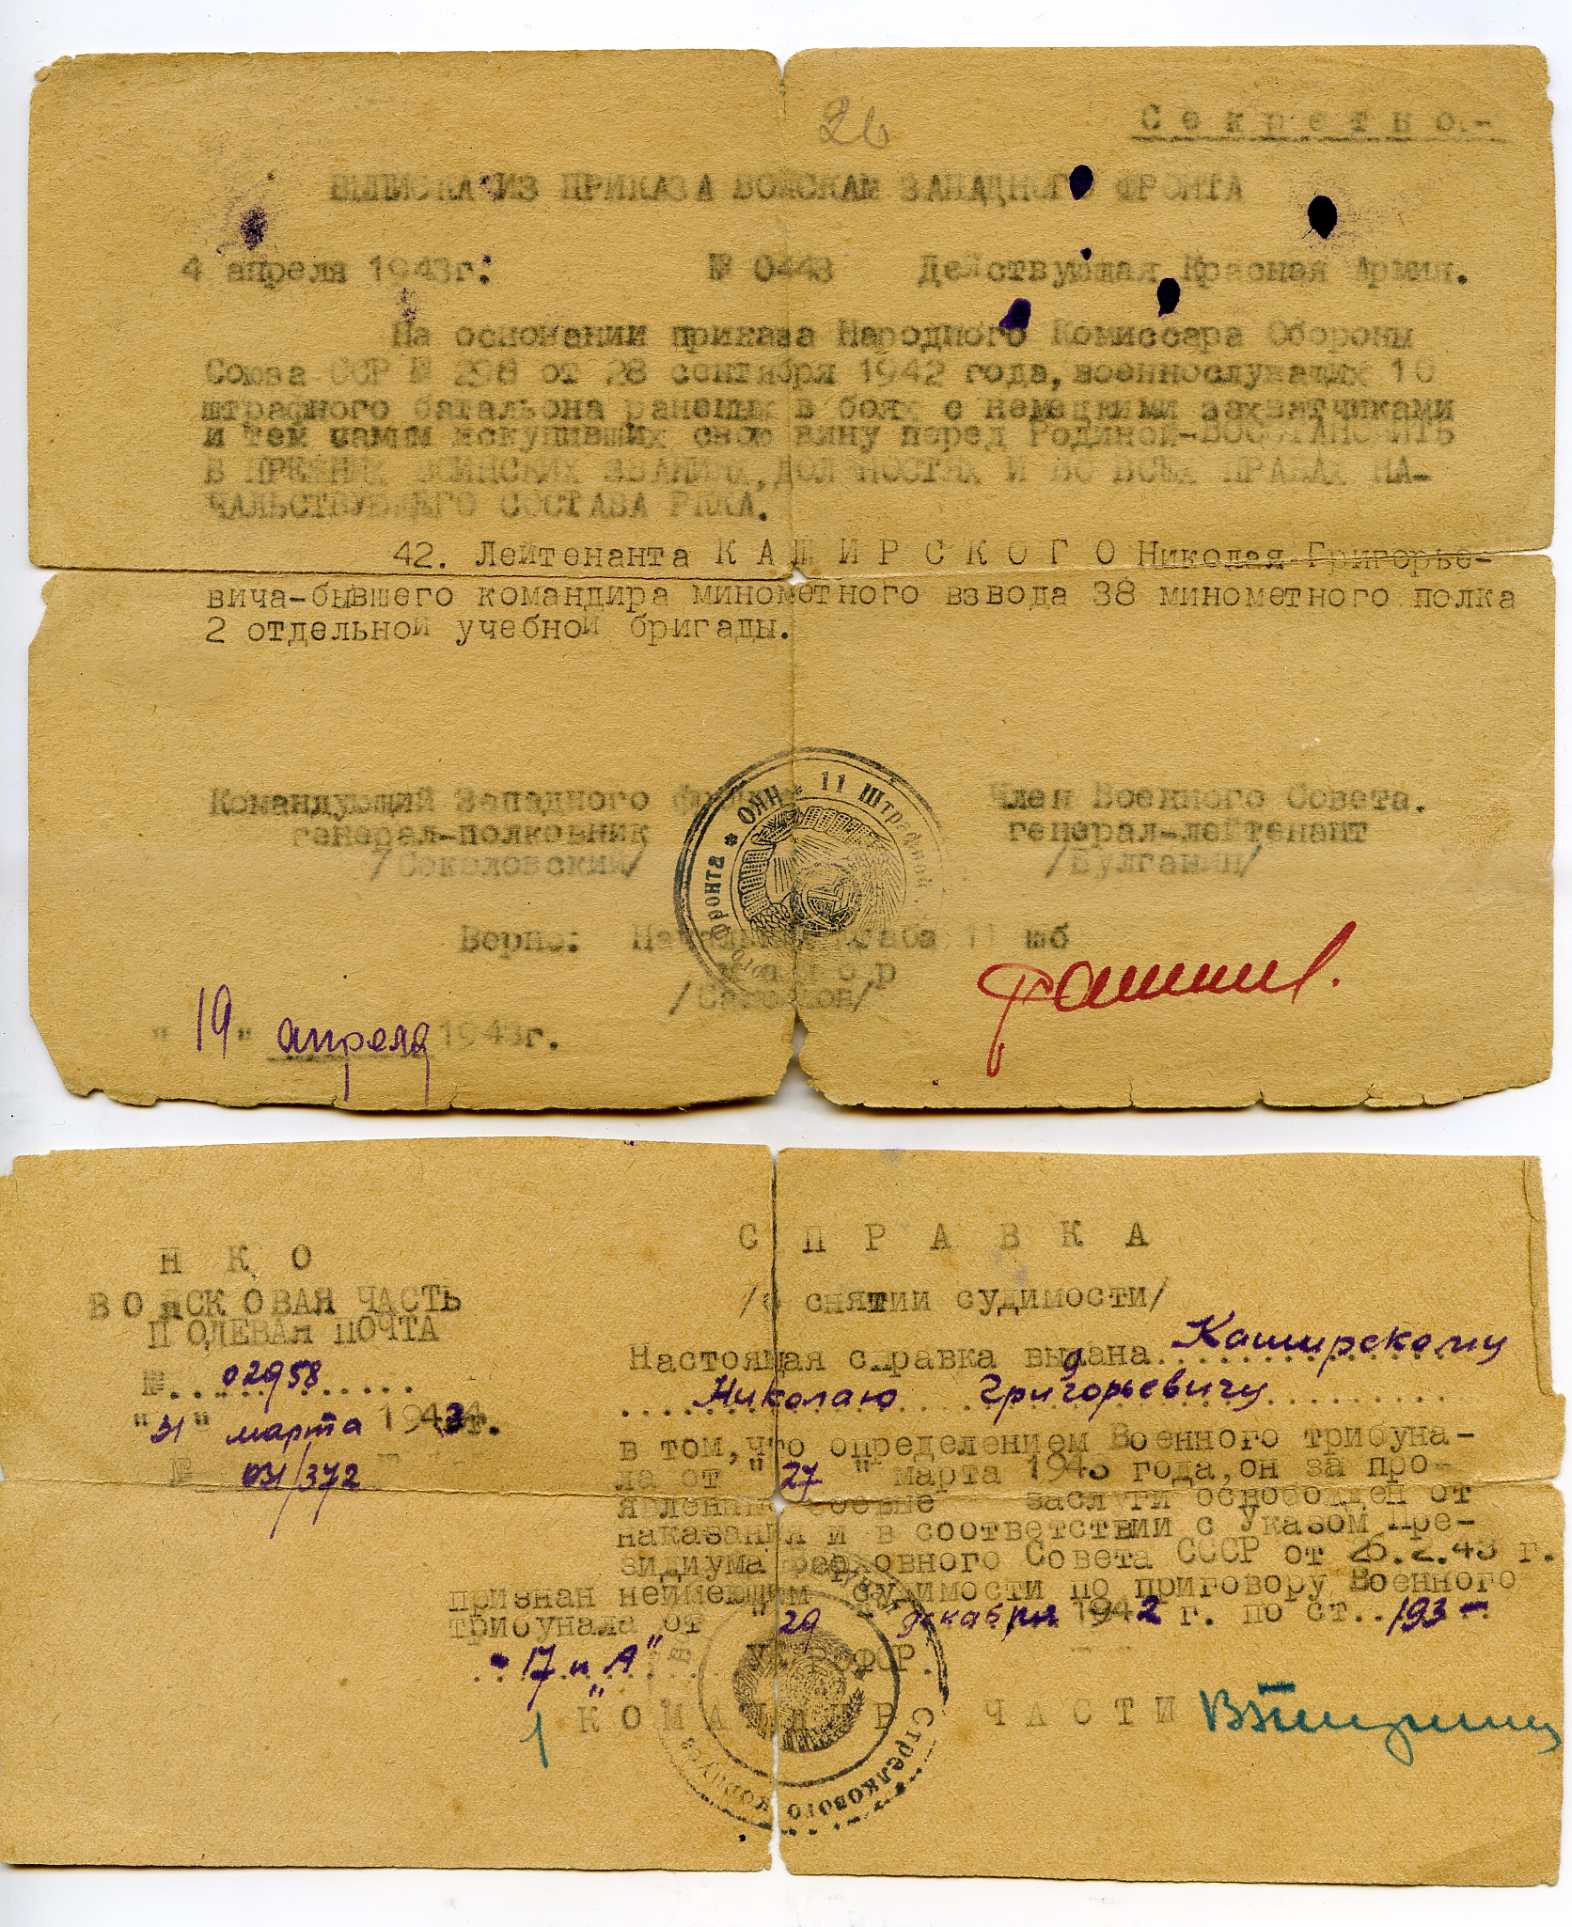 26
Секретно.-
ВЫПИСКА ИЗ ПРИКАЗА ВОЙСКАМ ЗАПАДНОГО ФРОНТА
4 апреля 1943г. № 0443 Действующая Красная Армия.
На основании приказа Народного Комиссара Обороны
Союза ССР № 298 от 28 сентября 1942 года, военнослужащих 10
штрафного батальона раненых в боях с немецкими захватчиками
и тем самым искупивших свою вину перед Родиной-ВОССТАНОВИТЬ
В ПРЕЖНИХ ВОИНСКИХ ЗВАНИЯХ, ДОЛЖНОСТЯХ И ВО ВСЕХ ПРАВАХ НА-
ЧАЛЬСТВУЮЩЕГО СОСТАВА РККА.
42. Лейтенанта КАШИРСКОГО Николая Григорье-
вича-бывшего командира минометного взвода 38 минометного полка
2 отдельной учебной бригады.
Командующий Западного фронта Член Военного Совета.
генерал-полковник генерал-лейтенант
/Соколовский/ /Булганин/
ОАН 11 Штрафной фронта
Верно: Начальник штаба 11 шб
майор
"19" апреля 1943г.
СПРАВКА
/о снятии судимости/
НКО
ВОЙСКОВАЯ ЧАСТЬ
ПОЛЕВАЯ ПОЧТА
№ 02958
"31" марта 1943г.
№ 031/372
Настоящая справка выдана Каширскому
Николаю Григорьевичу
в том, что определением Военного трибуна-
ла от "27" марта 1943 года, он за про-
явленные боевые заслуги освобожден от
наказания и в соответствии с Указом Пре-
зидиума Верховного Совета СССР от 26.2.43 г.
признан неимеющим судимости по приговору Военного
трибунала от "29" декабря 1942 г. по ст. 193-
-17 п "А" УК РСФСР.
КОМАНДИР ЧАСТИ
Стрелкового корпуса